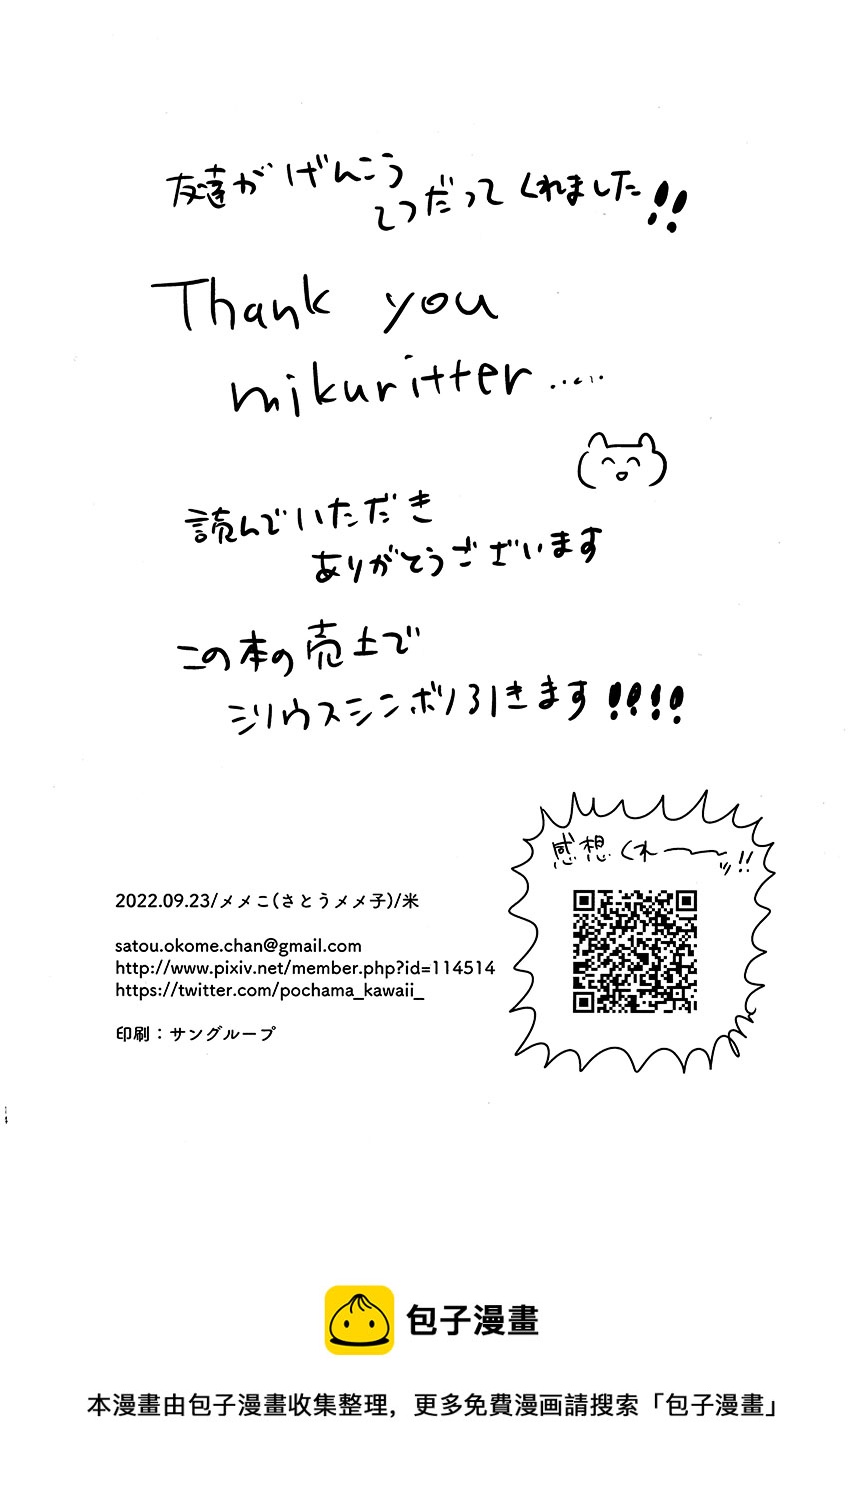 友達がげんこう
てつだってくれました!!
Thank you
mikuritter.....
読んでいただき
ありがとうございます
この本の売上で
シリウスシンボリ引きます!!!!
感想くれ〜〜ッ!!
2022.09.23/メメこ(さとうメメ子)/米
satou.okome.chan@gmail.com
http://www.pixiv.net/member.php?id=114514
https://twitter.com/pochama_kawaii_
印刷：サングループ
包子漫畫
本漫畫由包子漫畫收集整理，更多免費漫画請搜索「包子漫畫」